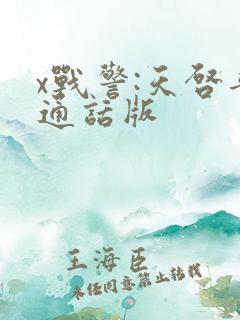 x戰警:天啓
通話版
王海臣
未經同意禁止轉載